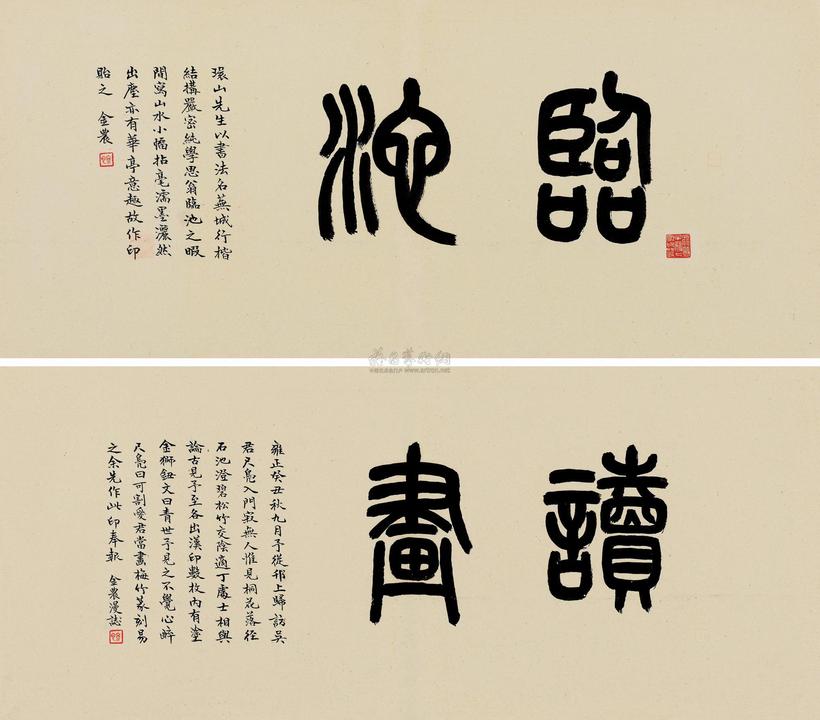 臨池
環山先生以書法名蕪城行楷
結構嚴密純學思翁臨池之暇
間寫山水小幅拈毫濡墨灑然
出塵亦有華亭意趣故作印
貽之 金農
www.artron.net
讀畫
雍正癸丑秋九月予從邗上歸訪吳
君尺鳧入門寂無人惟見桐花落徑
石池澄碧松竹交陰適丁處士相與
論古見予至各出漢印數枚內有塗
金獅鈕文曰青世予見之不覺心醉
尺鳧曰可割愛君當畫梅竹篆刻易
之余先作此印奉報 金農漫誌